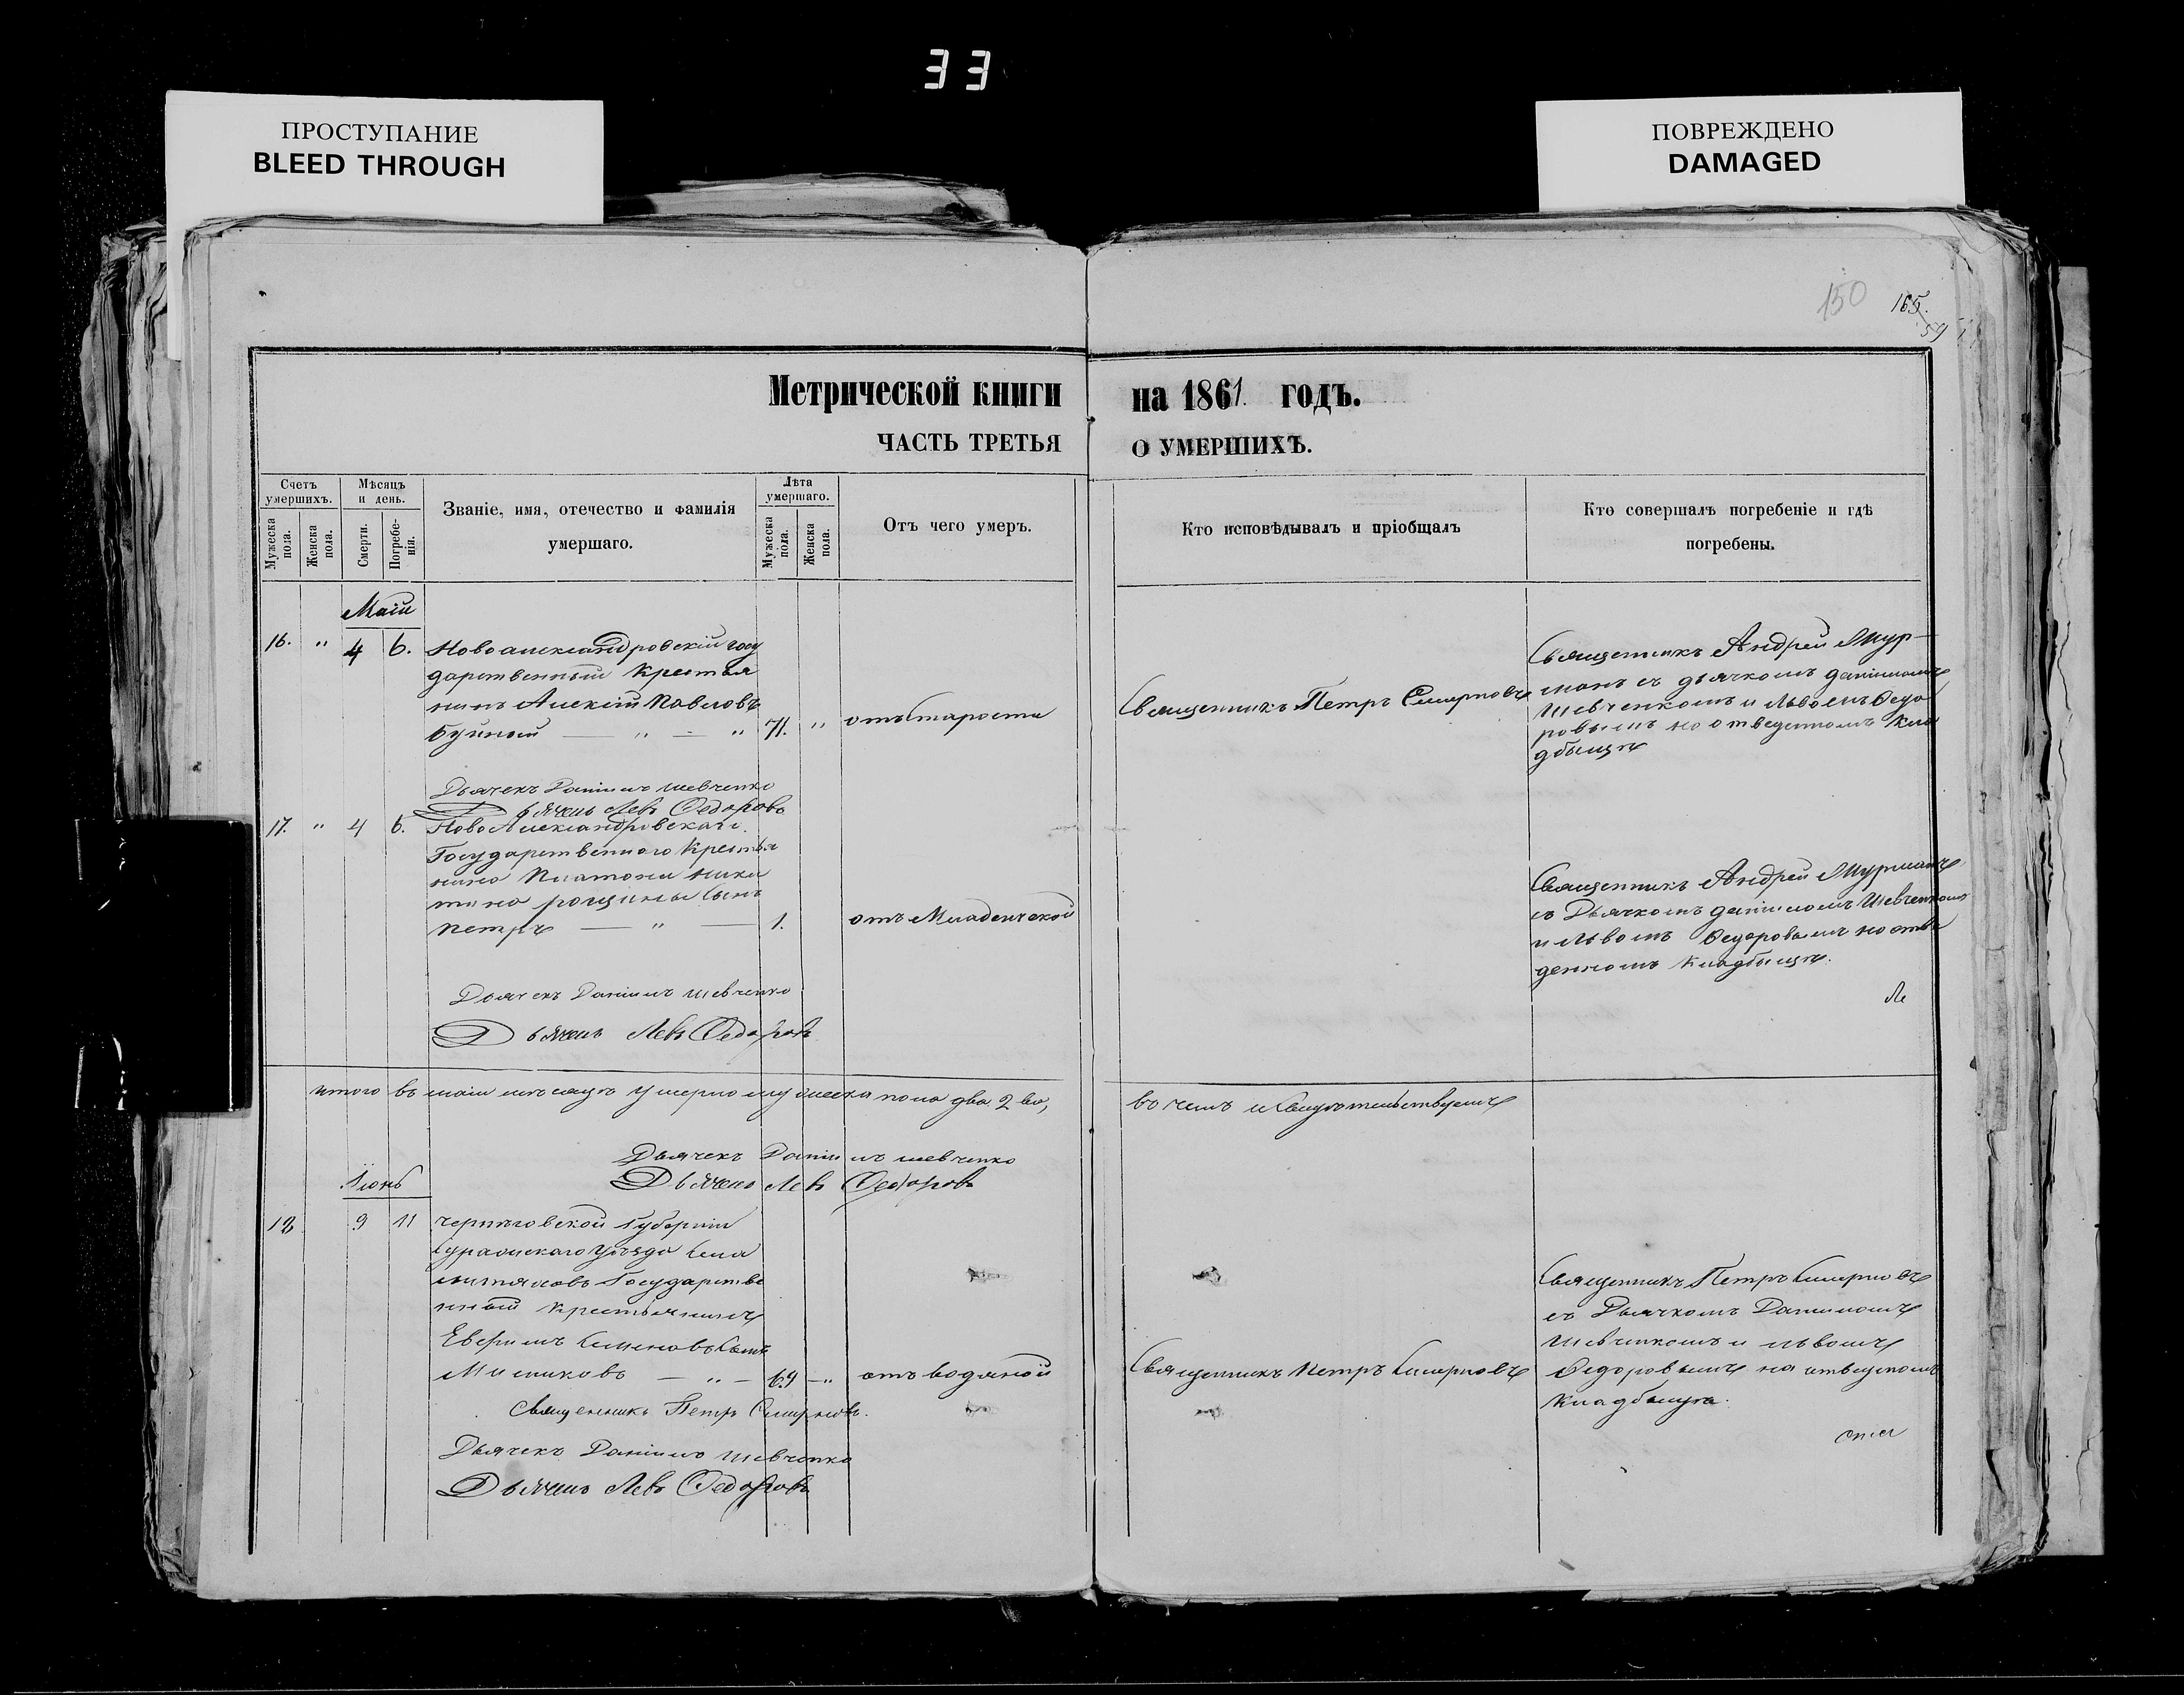 33
ПРОСТУПАНИЕ
BLEED THROUGH
ПОВРЕЖДЕНО
DAMAGED
150
165.
59
Метрической книги на 1861. годъ.
ЧАСТЬ ТРЕТЬЯ О УМЕРШИХЪ.
Счетъ умершихъ.
Мужеска пола.
Женска пола.
Мѣсяцъ и день.
Смерти.
Погребенія.
Званіе, имя, отечество и фамилія
умершаго.
Лѣта умершаго.
Мужеска пола.
Женска пола.
Отъ чего умеръ.
Кто исповѣдывалъ и пріобщалъ
Кто совершалъ погребеніе и гдѣ
погребены.
Маій
16. " 4 6.
Новоалександровскій госу
дарственный Крестья
нинъ Алексій Павловъ
Буйный — " — " 71. "
отъ старости
Священникъ Петръ Смирновъ
Священникъ Андрей Мур-
манъ съ дьячкомъ Даніиломъ
Шевченкомъ и Львомъ Ѳедо
ровымъ на отведенномъ Кла
дбищѣ
Дьячекъ Даніилъ Шевченко
Дьячекъ Левъ Федоровъ
17. " 4 6.
НовоАлександровскаго
Государственнаго Крестья
нина Платона Ники
тина сынъ
Петръ — " — 1.
отъ Младенческой
Священникъ Андрей Мурманъ
съ Дьячкомъ Даніиломъ Шевченкомъ
и Львомъ Ѳедоровымъ на отве
денномъ Кладбищѣ.
Дьячекъ Даніилъ Шевченко
Дьячекъ Левъ Федоровъ
итого въ маіи мѣсяцѣ умерло мужеска пола два 2 ва,
въ чемъ и свидѣтельствуемъ
Дьячекъ Даніилъ Шевченко
Дьячекъ Левъ Федоровъ
Іюнь
18 9 11
Черниговской Губерніи
Суражскаго Уѣзда Села
Государстве
нный крестьянинъ
Семеновъ сынъ
Мисниковъ — " — 69 — "
отъ водяной
Священникъ Петръ Смирновъ
Священникъ Петръ Смирновъ
съ Дьячкомъ Даніиломъ
Шевченкомъ и Львомъ
Ѳедоровымъ на отведеномъ
Кладбищѣ.
Священникъ Петръ Смирновъ.
Дьячекъ Даніилъ Шевченко
Дьячекъ Левъ Федоровъ